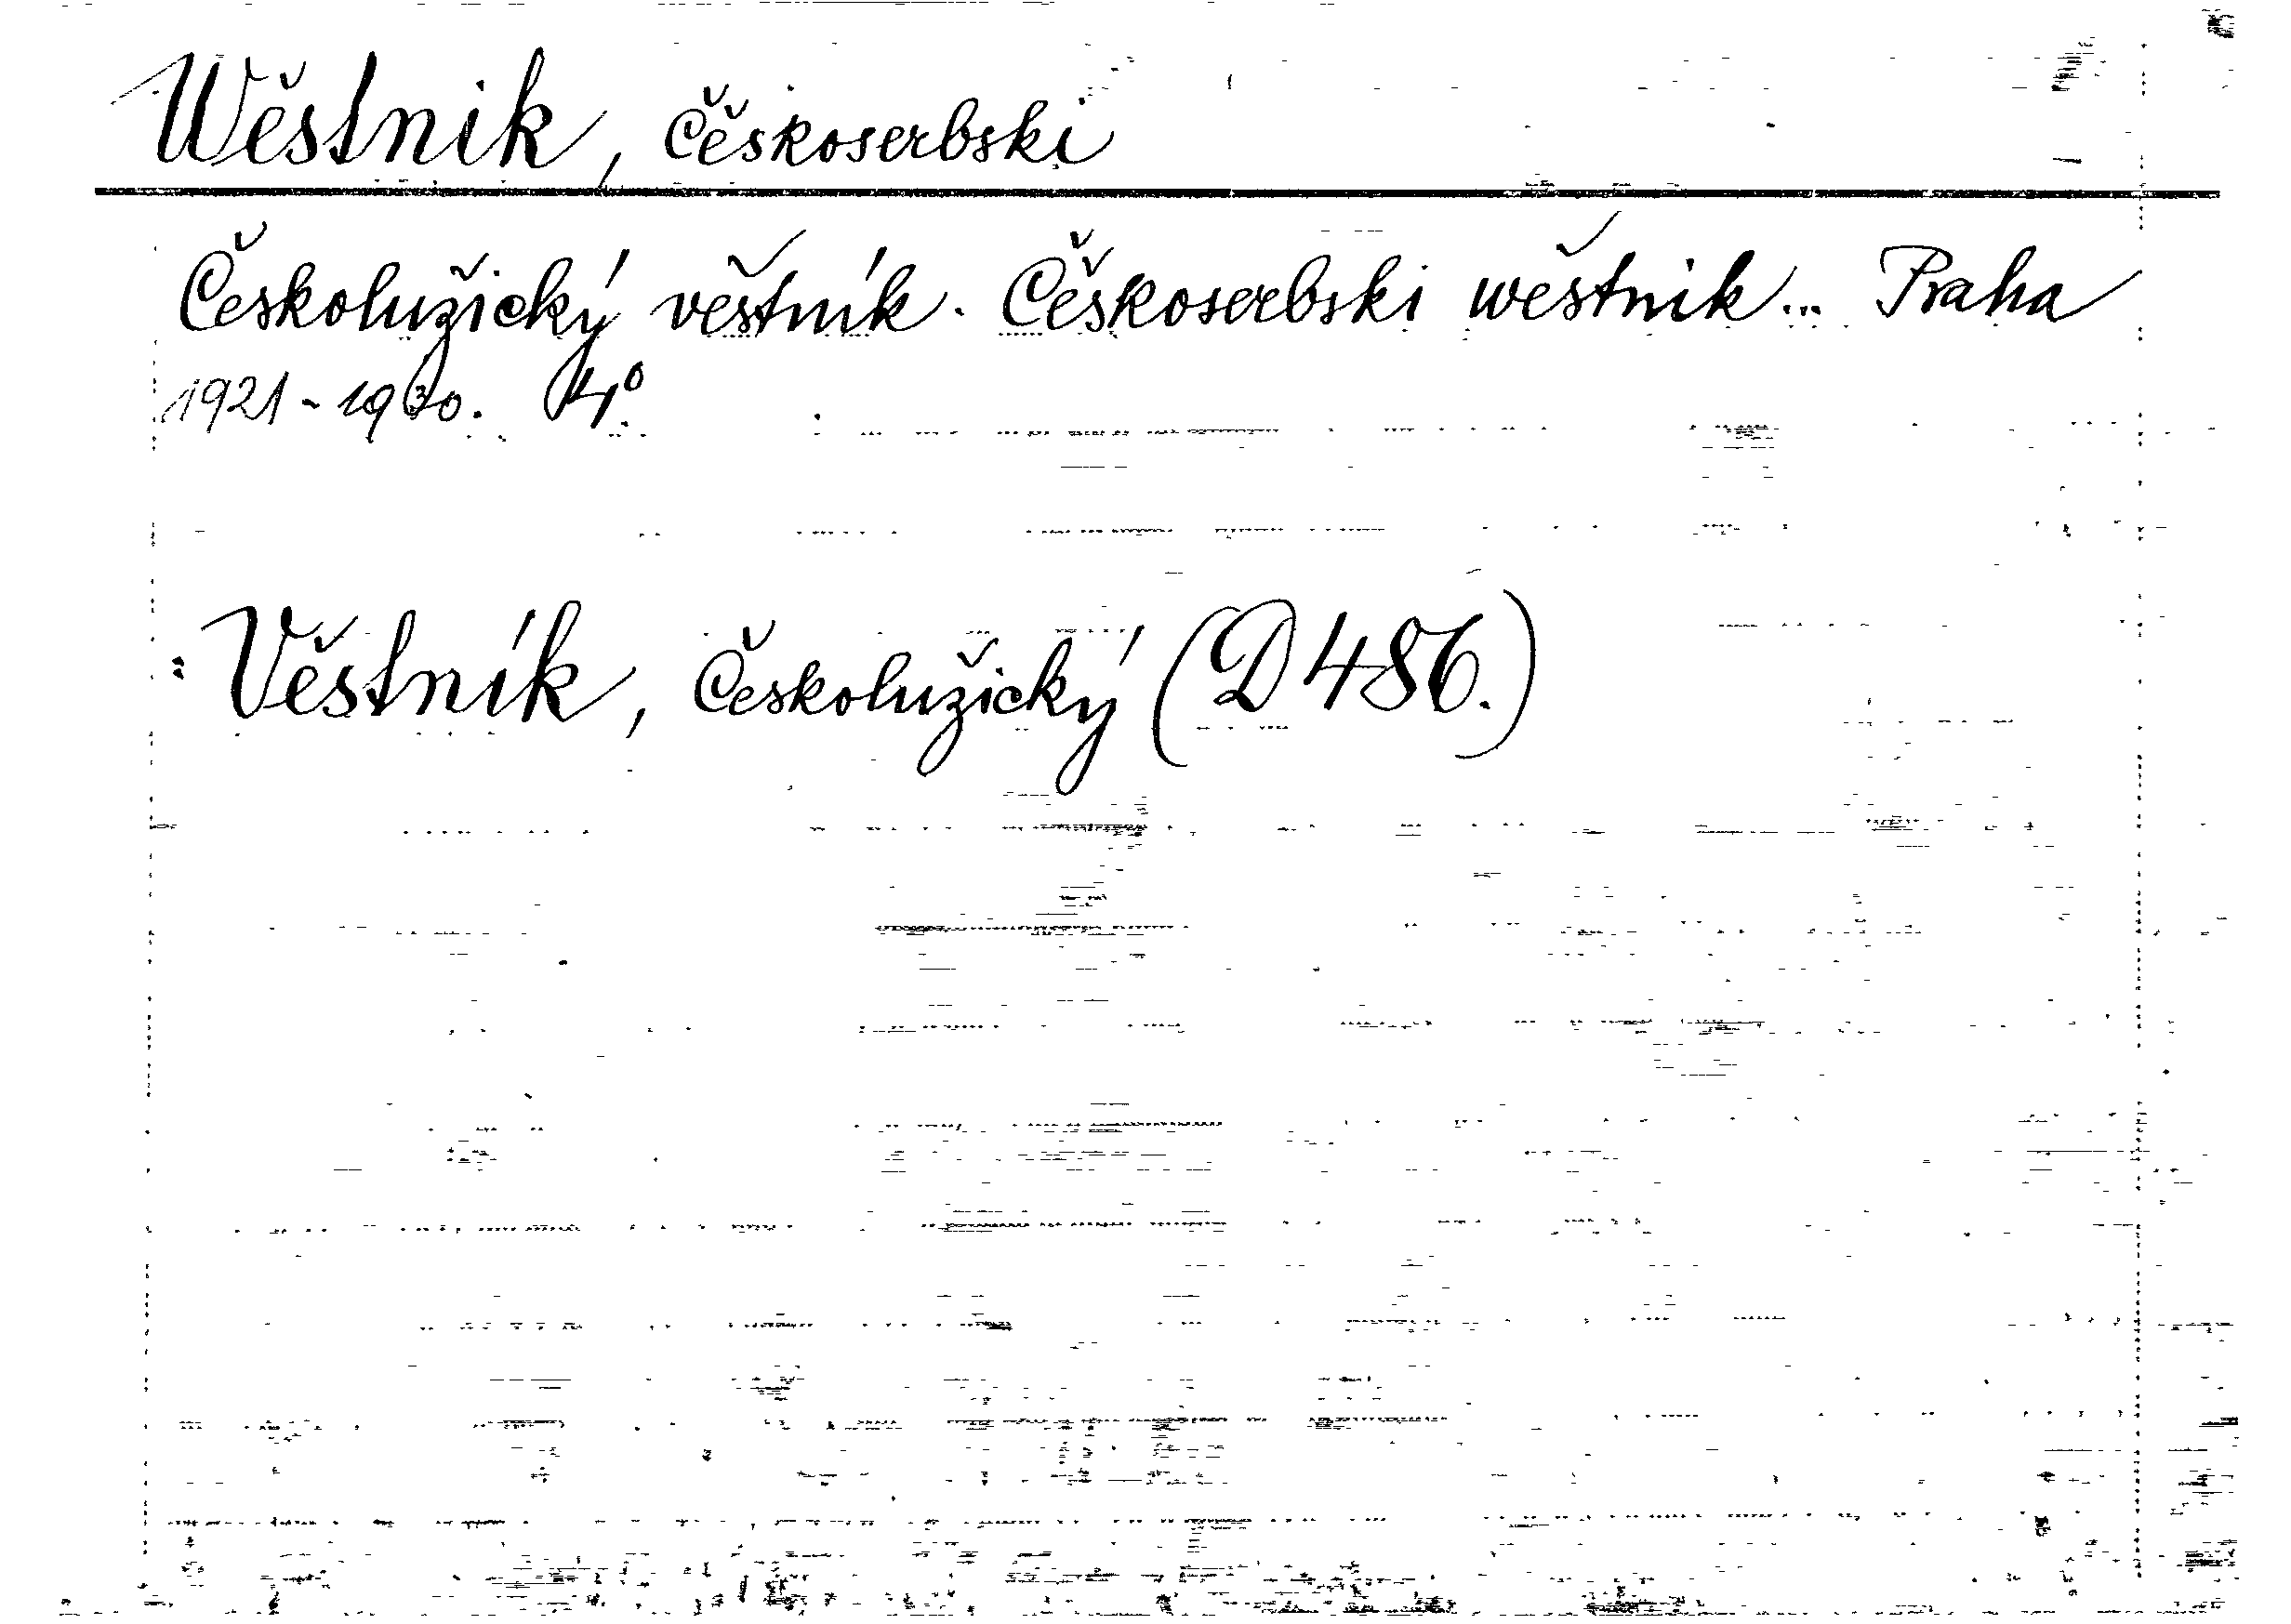 Wěstnik, Čěskoserbski
Českolužický věstník. Čěskoserbski wěstnik... Praha
1921-1930. 4°
: Věstník, Českolužický (D 486.)